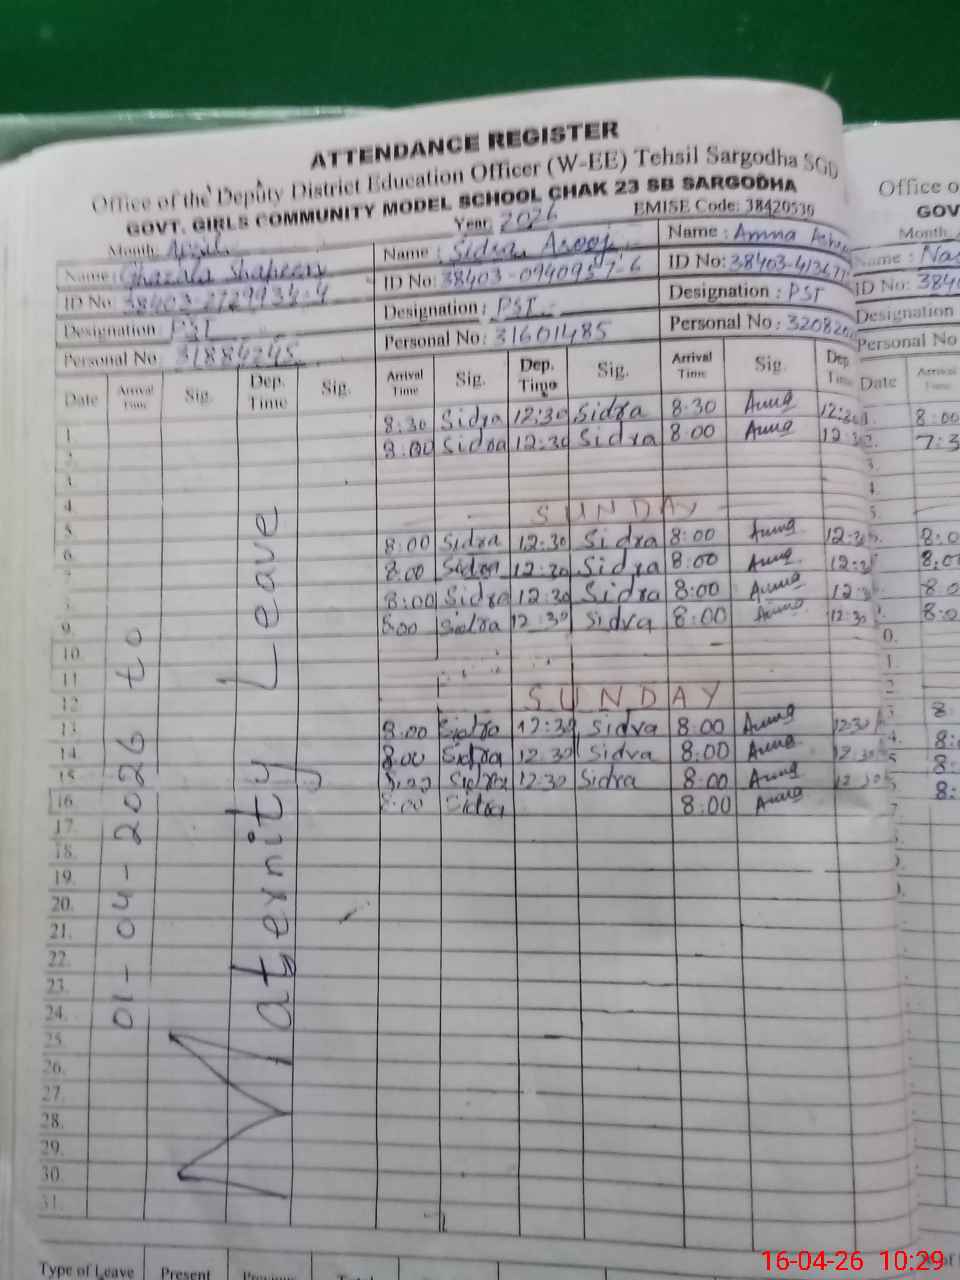 ATTENDANCE REGISTER
Office of the Deputy District Education Officer (W-EE) Tehsil Sargodha SGD
GOVT. GIRLS COMMUNITY MODEL SCHOOL CHAK 23 SB SARGODHA
Month April Year 2026 EMISE Code: 38420536
Name: Ghazala Shaheen Name: Sidra Arooj Name: Amna
ID No: ID No: 38403-0940957-6 ID No: 38403-
Designation: PST Designation: PST Designation: PST
Personal No 31884245 Personal No: 31601485 Personal No: 3208
Date Arrival Time Sig. Dep. Time Sig. Arrival Time Sig. Dep. Time Sig. Arrival Time Sig. Dep. Time Date Arrival Time
1. 8:30 Sidra 12:30 Sidra 8:30 Amna 12:30 8:00
2. 8:00 Sidra 12:30 Sidra 8:00 Amna 12:30 2. 7:3
3. 3.
4. 4.
5. SUNDAY 5.
6. 8:00 Sidra 12:30 Sidra 8:00 Amna 12:30 8:0
7. 8:00 Sidra 12:30 Sidra 8:00 Amna 12:3 8:0
8. 8:00 Sidra 12:30 Sidra 8:00 Amna 12:3 8:0
9. 8:00 Sidra 12:30 Sidra 8:00 Amna 12:30 8:0
10. 0.
11 1.
12 SUNDAY 2
13 8:00 Sidra 12:30 Sidra 8:00 Amna 12:30 3 8:
14 8:00 Sidra 12:30 Sidra 8:00 Amna 12:30 4. 8:
15 8:00 Sidra 12:30 Sidra 8:00 Amna 12:30 5 8:
16 8:00 Sidra 8:00 Amna 8:
17. 7.
18.
19.
20.
21.
22.
23.
24.
25.
26.
27.
28.
29.
30.
31.
01-04-2026 to
Maternity Leave
Type of Leave Present
Office o
GOV
Month
Name: Na
ID No: 384
Designation
Personal No
16-04-26 10:29